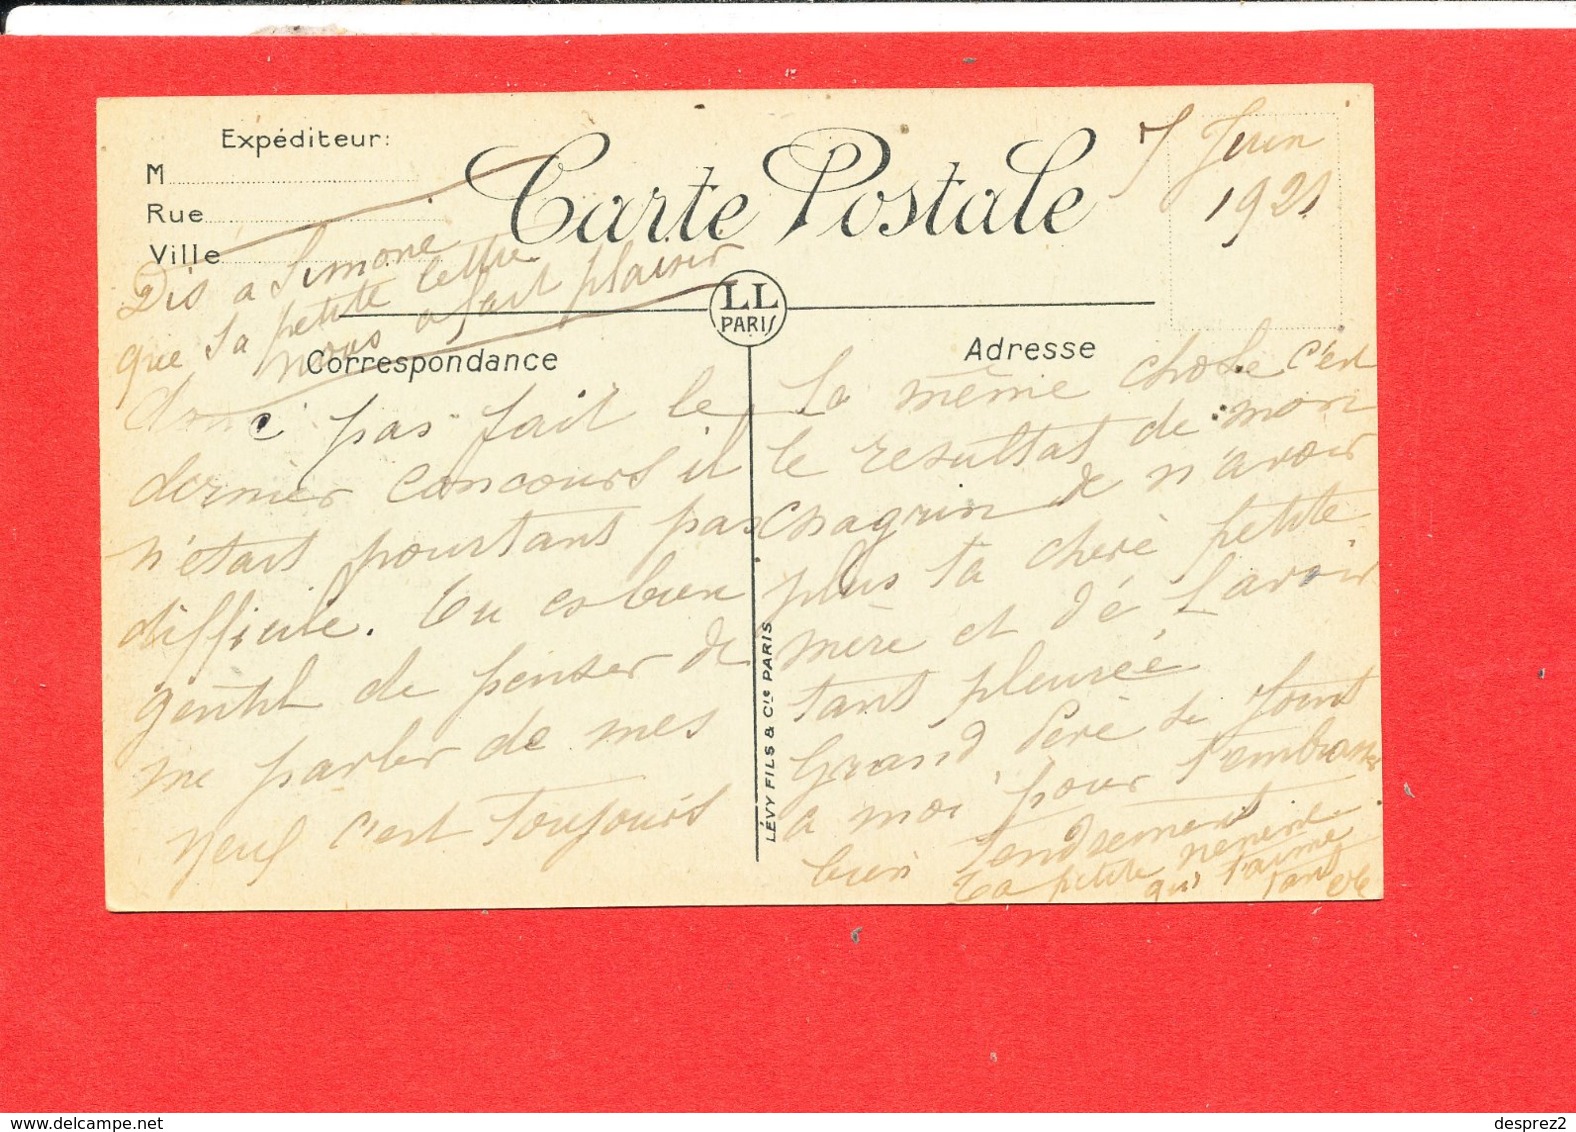 Expéditeur:
M
Rue
Ville
Carte Postale
7 Juin
1921
Dis a Simone
que sa petite lettre
nous a fait plaisir
LL
PARIS
Correspondance
Adresse
donc pas fait le
dernier concours il
n'etait pourtant pas
difficile. tu es bien
gentil de penser de
me parler de mes
c'est toujours
la même chose c'est
le resultat de mon
chagrin de n'avoir
plus ta cherè petite
mère et dé l'avoir
tant pleureé
Grand Pèrè se joint
a moi pour t'embrasser
bien tendrement
ta petite
qui t'aime
tant
LÉVY FILS & Cie PARIS
www.delcampe.net
desprez2